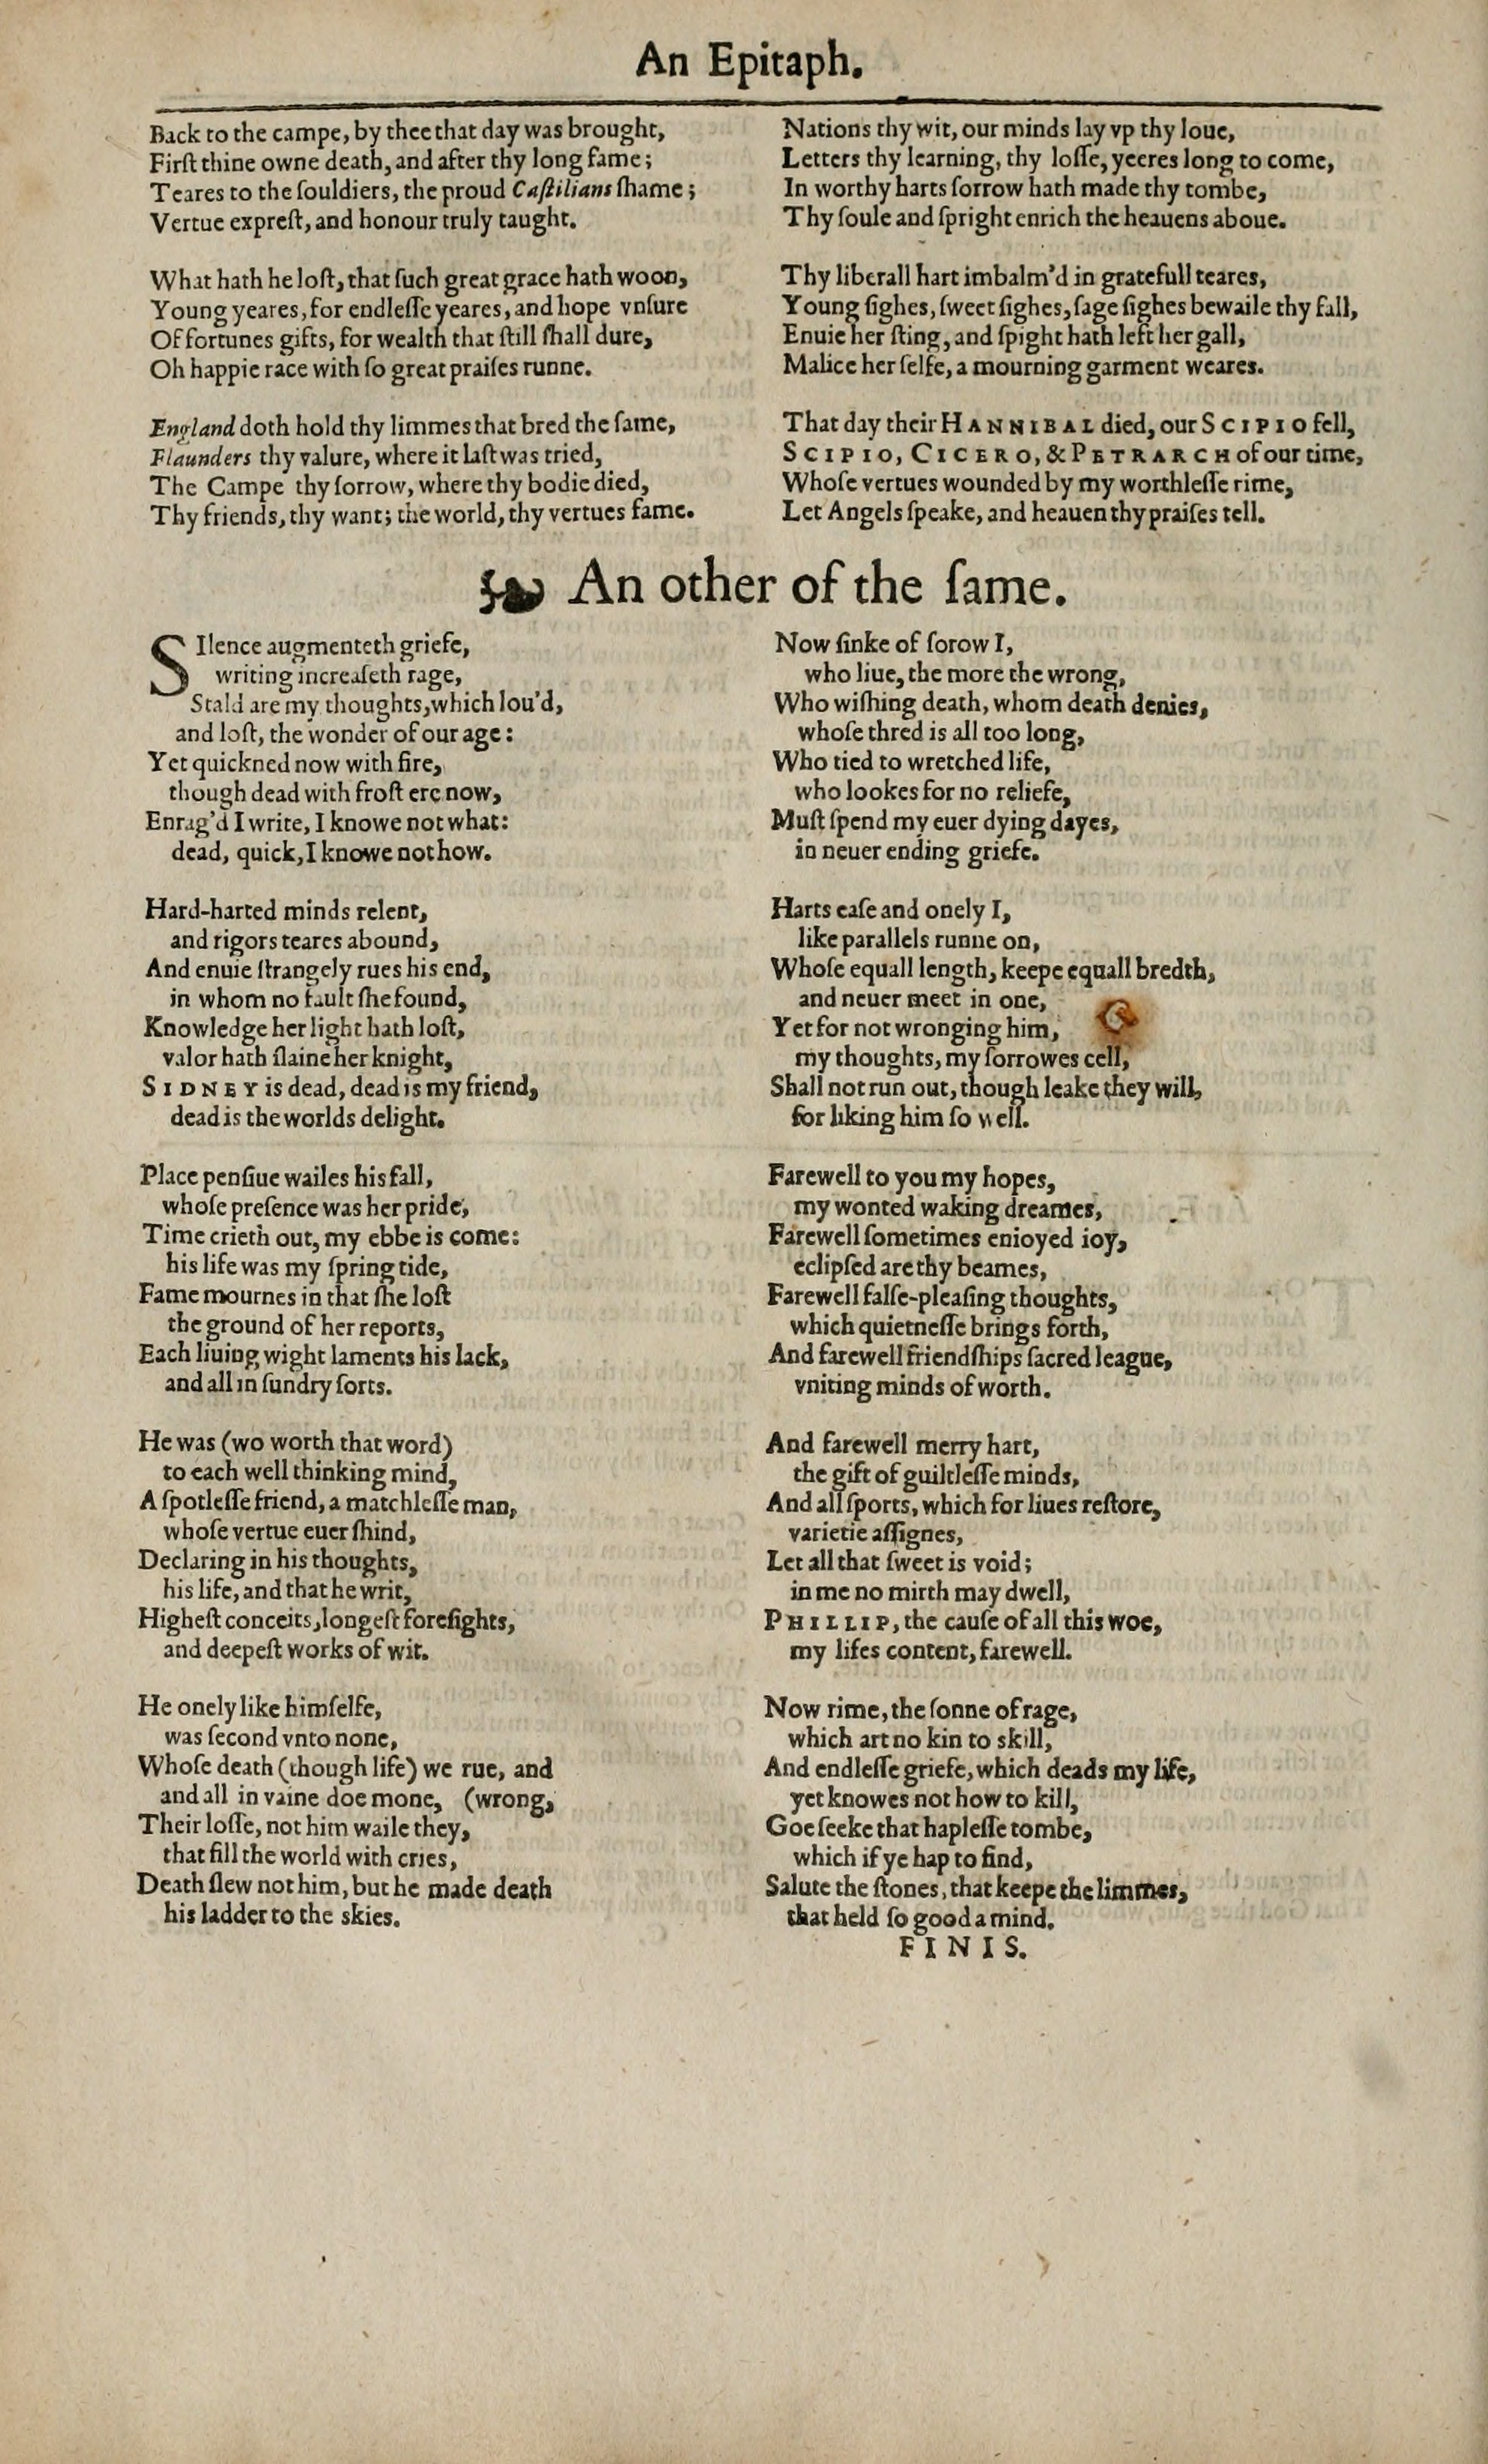 An Epitaph.
Back to the campe, by thee that day was brought,
Firſt thine owne death, and after thy long fame;
Teares to the ſouldiers, the proud Caſtilians ſhame;
Vertue expreſt, and honour truly taught.
What hath he loſt, that ſuch great grace hath woon,
Young yeares, for endleſſe yeares, and hope vnſure
Of fortunes gifts, for wealth that ſtill ſhall dure,
Oh happie race with ſo great praiſes runne.
England doth hold thy limmes that bred the ſame,
Flaunders thy valure, where it laſt was tried,
The Campe thy ſorrow, where thy bodie died,
Thy friends, thy want; the world, thy vertues fame.
Nations thy wit, our minds lay vp thy loue,
Letters thy learning, thy loſſe, yeeres long to come,
In worthy harts ſorrow hath made thy tombe,
Thy ſoule and ſpright enrich the heauens aboue.
Thy liberall hart imbalm'd in gratefull teares,
Young ſighes, ſweet ſighes, ſage ſighes bewaile thy fall,
Enuie her ſting, and ſpight hath left her gall,
Malice her ſelfe, a mourning garment weares.
That day their HANNIBAL died, our SCIPIO fell,
SCIPIO, CICERO, & PETRARCH of our time,
Whoſe vertues wounded by my worthleſſe rime,
Let Angels ſpeake, and heauen thy praiſes tell.
An other of the ſame.
SIlence augmenteth griefe,
writing increaſeth rage,
Stald are my thoughts, which lou'd,
and loſt, the wonder of our age:
Yet quickned now with fire,
though dead with froſt ere now,
Enrag'd I write, I knowe not what:
dead, quick, I knowe not how.
Hard-harted minds relent,
and rigors teares abound,
And enuie ſtrangely rues his end,
in whom no fault ſhe found,
Knowledge her light hath loſt,
valor hath ſlaine her knight,
SIDNEY is dead, dead is my friend,
dead is the worlds delight.
Place penſiue wailes his fall,
whoſe preſence was her pride,
Time crieth out, my ebbe is come:
his life was my ſpring tide,
Fame mournes in that ſhe loſt
the ground of her reports,
Each liuing wight laments his lack,
and all in ſundry ſorts.
He was (wo worth that word)
to each well thinking mind,
A ſpotleſſe friend, a matchleſſe man,
whoſe vertue euer ſhind,
Declaring in his thoughts,
his life, and that he writ,
Higheſt conceits, longeſt foreſights,
and deepeſt works of wit.
He onely like himſelfe,
was ſecond vnto none,
Whoſe death (though life) we rue, and
and all in vaine doe mone, (wrong,
Their loſſe, not him waile they,
that fill the world with cries,
Death ſlew not him, but he made death
his ladder to the skies.
Now ſinke of ſorow I,
who liue, the more the wrong,
Who wiſhing death, whom death denies,
whoſe thred is all too long,
Who tied to wretched life,
who lookes for no reliefe,
Muſt ſpend my euer dying dayes,
in neuer ending griefe.
Harts eaſe and onely I,
like parallels runne on,
Whoſe equall length, keepe equall bredth,
and neuer meet in one,
Yet for not wronging him,
my thoughts, my ſorrowes cell,
Shall not run out, though leake they will,
for liking him ſo well.
Farewell to you my hopes,
my wonted waking dreames,
Farewell ſometimes enioyed ioy,
eclipſed are thy beames,
Farewell falſe-pleaſing thoughts,
which quietneſſe brings forth,
And farewell friendſhips ſacred league,
vniting minds of worth.
And farewell merry hart,
the gift of guiltleſſe minds,
And all ſports, which for liues reſtore,
varietie aſſignes,
Let all that ſweet is void;
in me no mirth may dwell,
PHILLIP, the cauſe of all this woe,
my lifes content, farewell.
Now rime, the ſonne of rage,
which art no kin to skill,
And endleſſe griefe, which deads my life,
yet knowes not how to kill,
Goe ſeeke that hapleſſe tombe,
which if ye hap to find,
Salute the ſtones, that keepe the limmes,
that held ſo good a mind.
FINIS.